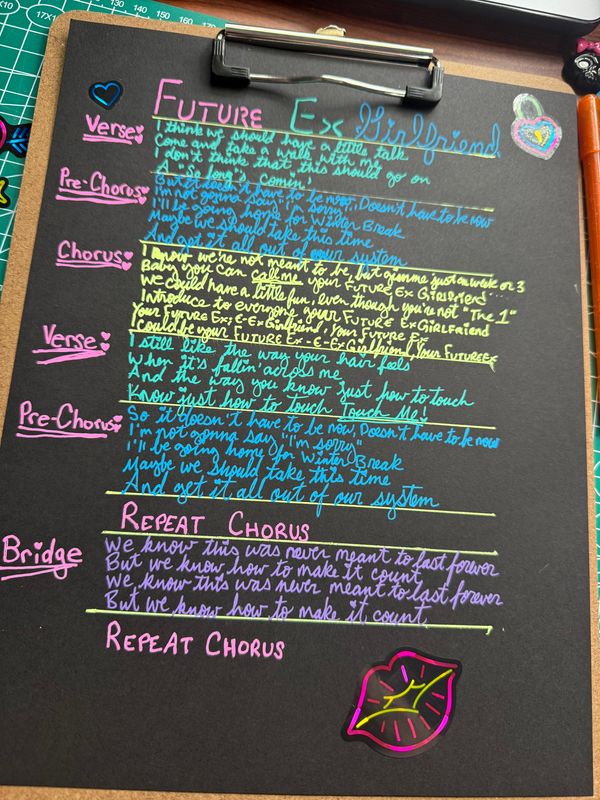 130 140 150 160 170
17X1
FUTURE EX Girlfriend
Verse
I think we should have a little talk
Come and take a walk with me
I don't think that this should go on
A "so long's comin'
Pre-Chorus
But it doesn't have to be now, Doesn't have to be now
I'm not gonna say "I'm sorry"
I'll be going home for Winter Break
Maybe we should take this time
And get it all out of our system
Chorus
I know we're not meant to be, but gimme just a week or 3
Baby you can call me your FUTURE EX GIRLFRIEND...
We could have a little fun, even though you're not "The 1"
Introduce to everyone your FUTURE EX GIRLFRIEND
Your FUTURE EX, E-EX Girlfriend, Your FUTURE EX
I could be your FUTURE EX-E-EX Girlfriend, Your FUTURE EX
Verse
I still like the way your hair feels
When it's fallin' across me
And the way you know just how to touch
Know just how to touch Touch Me!
Pre-Chorus
So it doesn't have to be now, Doesn't have to be now
I'm not gonna say "I'm sorry"
I'll be going home for Winter Break
Maybe we should take this time
And get it all out of our system
REPEAT CHORUS
Bridge
We know this was never meant to last forever
But we know how to make it count
We know this was never meant to last forever
But we know how to make it count
REPEAT CHORUS